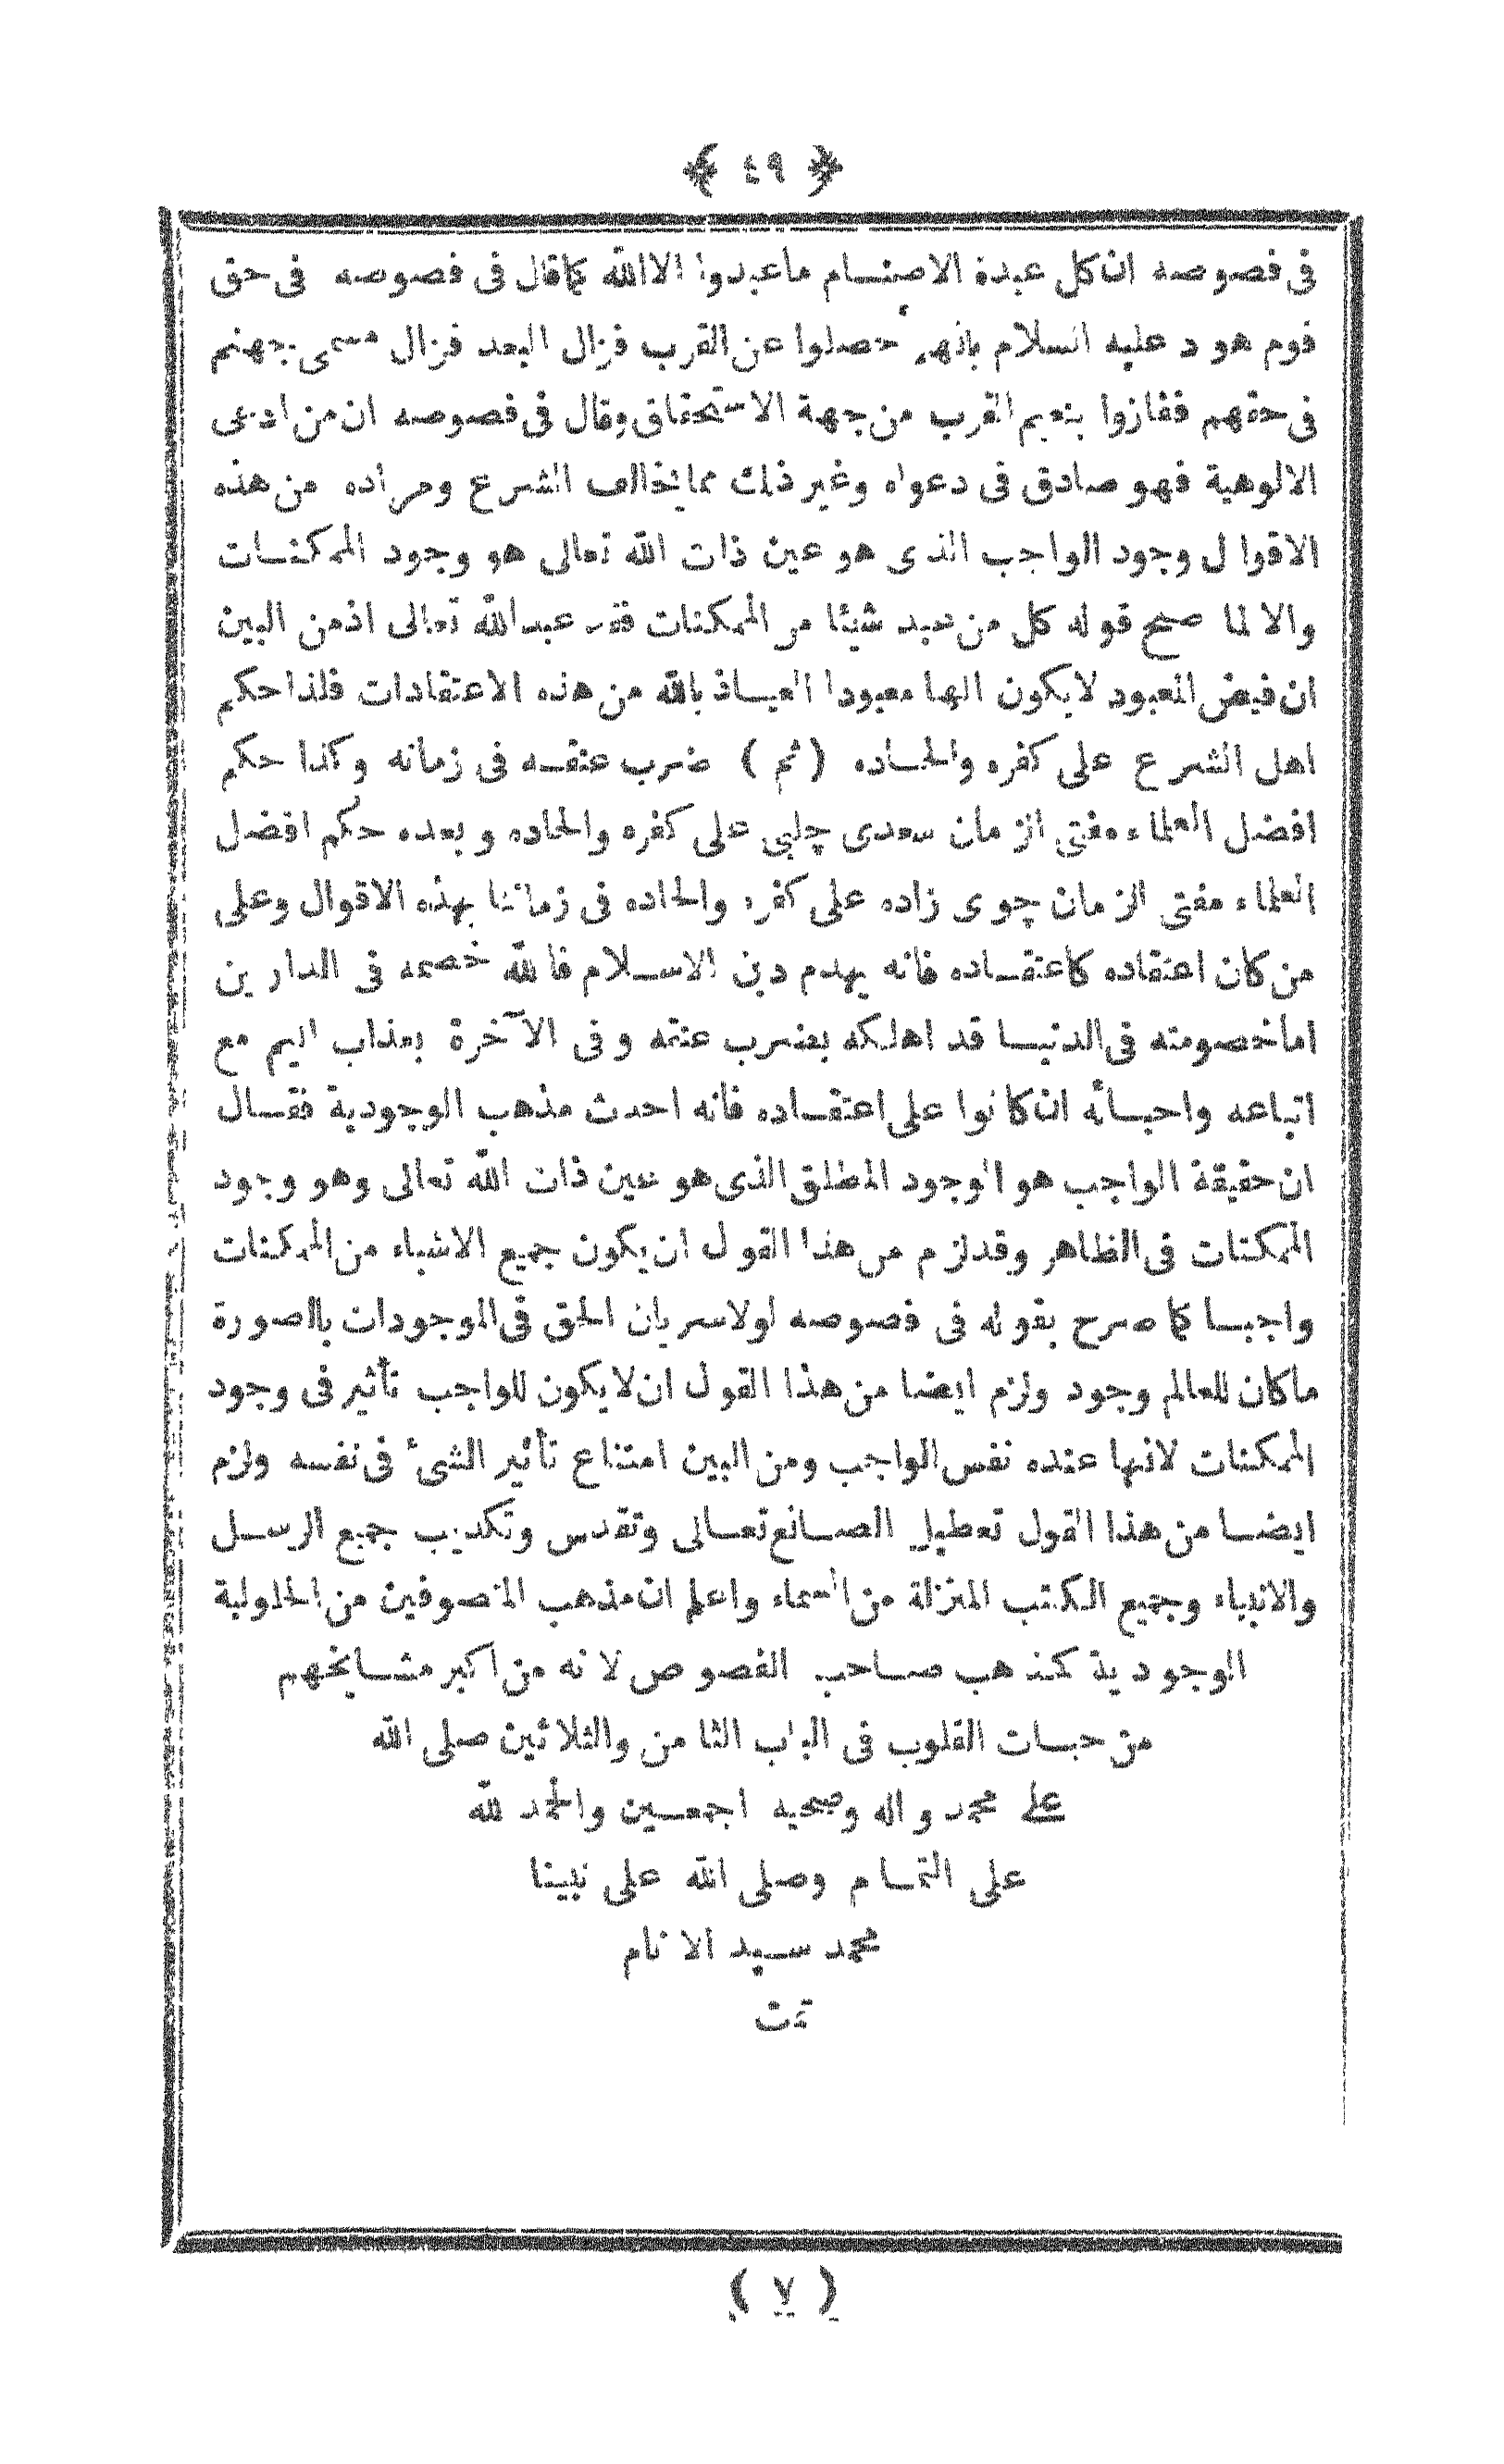 ﴿ ٤٩ ﴾
فى فصوصه ان كل عبدة الاصنــام ماعبدوا الا الله كما قال فى فصوصه فى حق
قوم هود عليه السلام بانهم حصلوا عن القرب فزال البعد فزال مسمى جهنم
فى حقهم ففازوا بنعيم القرب من جهة الاستحقاق وقال فى فصوصه ان من ادعى
الالوهية فهو صادق فى دعواه وغير ذلك مما يخالف الشرع ومراده من هذه
الاقوال وجود الواجب الذى هو عين ذات الله تعالى هو وجود الممكنــات
والا لما صح قوله كل من عبد شيئا من الممكنات فقد عبد الله تعالى اذ من البين
ان فيض المعبود لا يكون الها معبودا العيــاذ بالله من هذه الاعتقادات فلذا حكم
اهل الشرع على كفره والحــاده (ثم) ضرب عنقــه فى زمانه وكذا حكم
افضل العلماء مفتى الزمان سعدى چلبى على كفره والحاده وبعده حكم افضل
العلماء مفتى الزمان چوى زاده على كفره والحاده فى زماننا بهذه الاقوال وعلى
من كان اعتقاده كاعتقــاده فانه يهدم دين الاســلام فالله خصمه فى الدارين
اما خصومته فى الدنيــا قد اهلكه بضرب عنقه وفى الآخرة بعذاب اليم مع
اتباعه واحبــأئه ان كانوا على اعتقــاده فانه احدث مذهب الوجودية فقــال
ان حقيقة الواجب هو الوجود المطلق الذى هو عين ذات الله تعالى وهو وجود
الممكنات فى الظاهر وقد لزم من هذا القول ان يكون جميع الاشياء من الممكنات
واجبــا كما صرح بقوله فى فصوصه لولا سريان الحق فى الموجودات بالصورة
ما كان للعالم وجود ولزم ايضا من هذا القول ان لا يكون للواجب تأثير فى وجود
الممكنات لانها عنده نفس الواجب ومن البين امتناع تأثير الشئ فى نفسه ولزم
ايضــا من هذا القول تعطيل الصــانع تعــالى وتقدس وتكذيب جميع الرســل
والانبياء وجميع الكتب المنزلة من السماء واعلم ان مذهب المتصوفين من الحلولية
الوجودية كمذهب صــاحب الفصوص لانه من اكبر مشــايخهم
من حبــات القلوب فى الباب الثامن والثلاثين صلى الله
على محمد واله وصحبه اجمعــين والحمد لله
على التمــام وصلى الله على نبينا
محمد ســيد الانام
تمت
( ٧ )